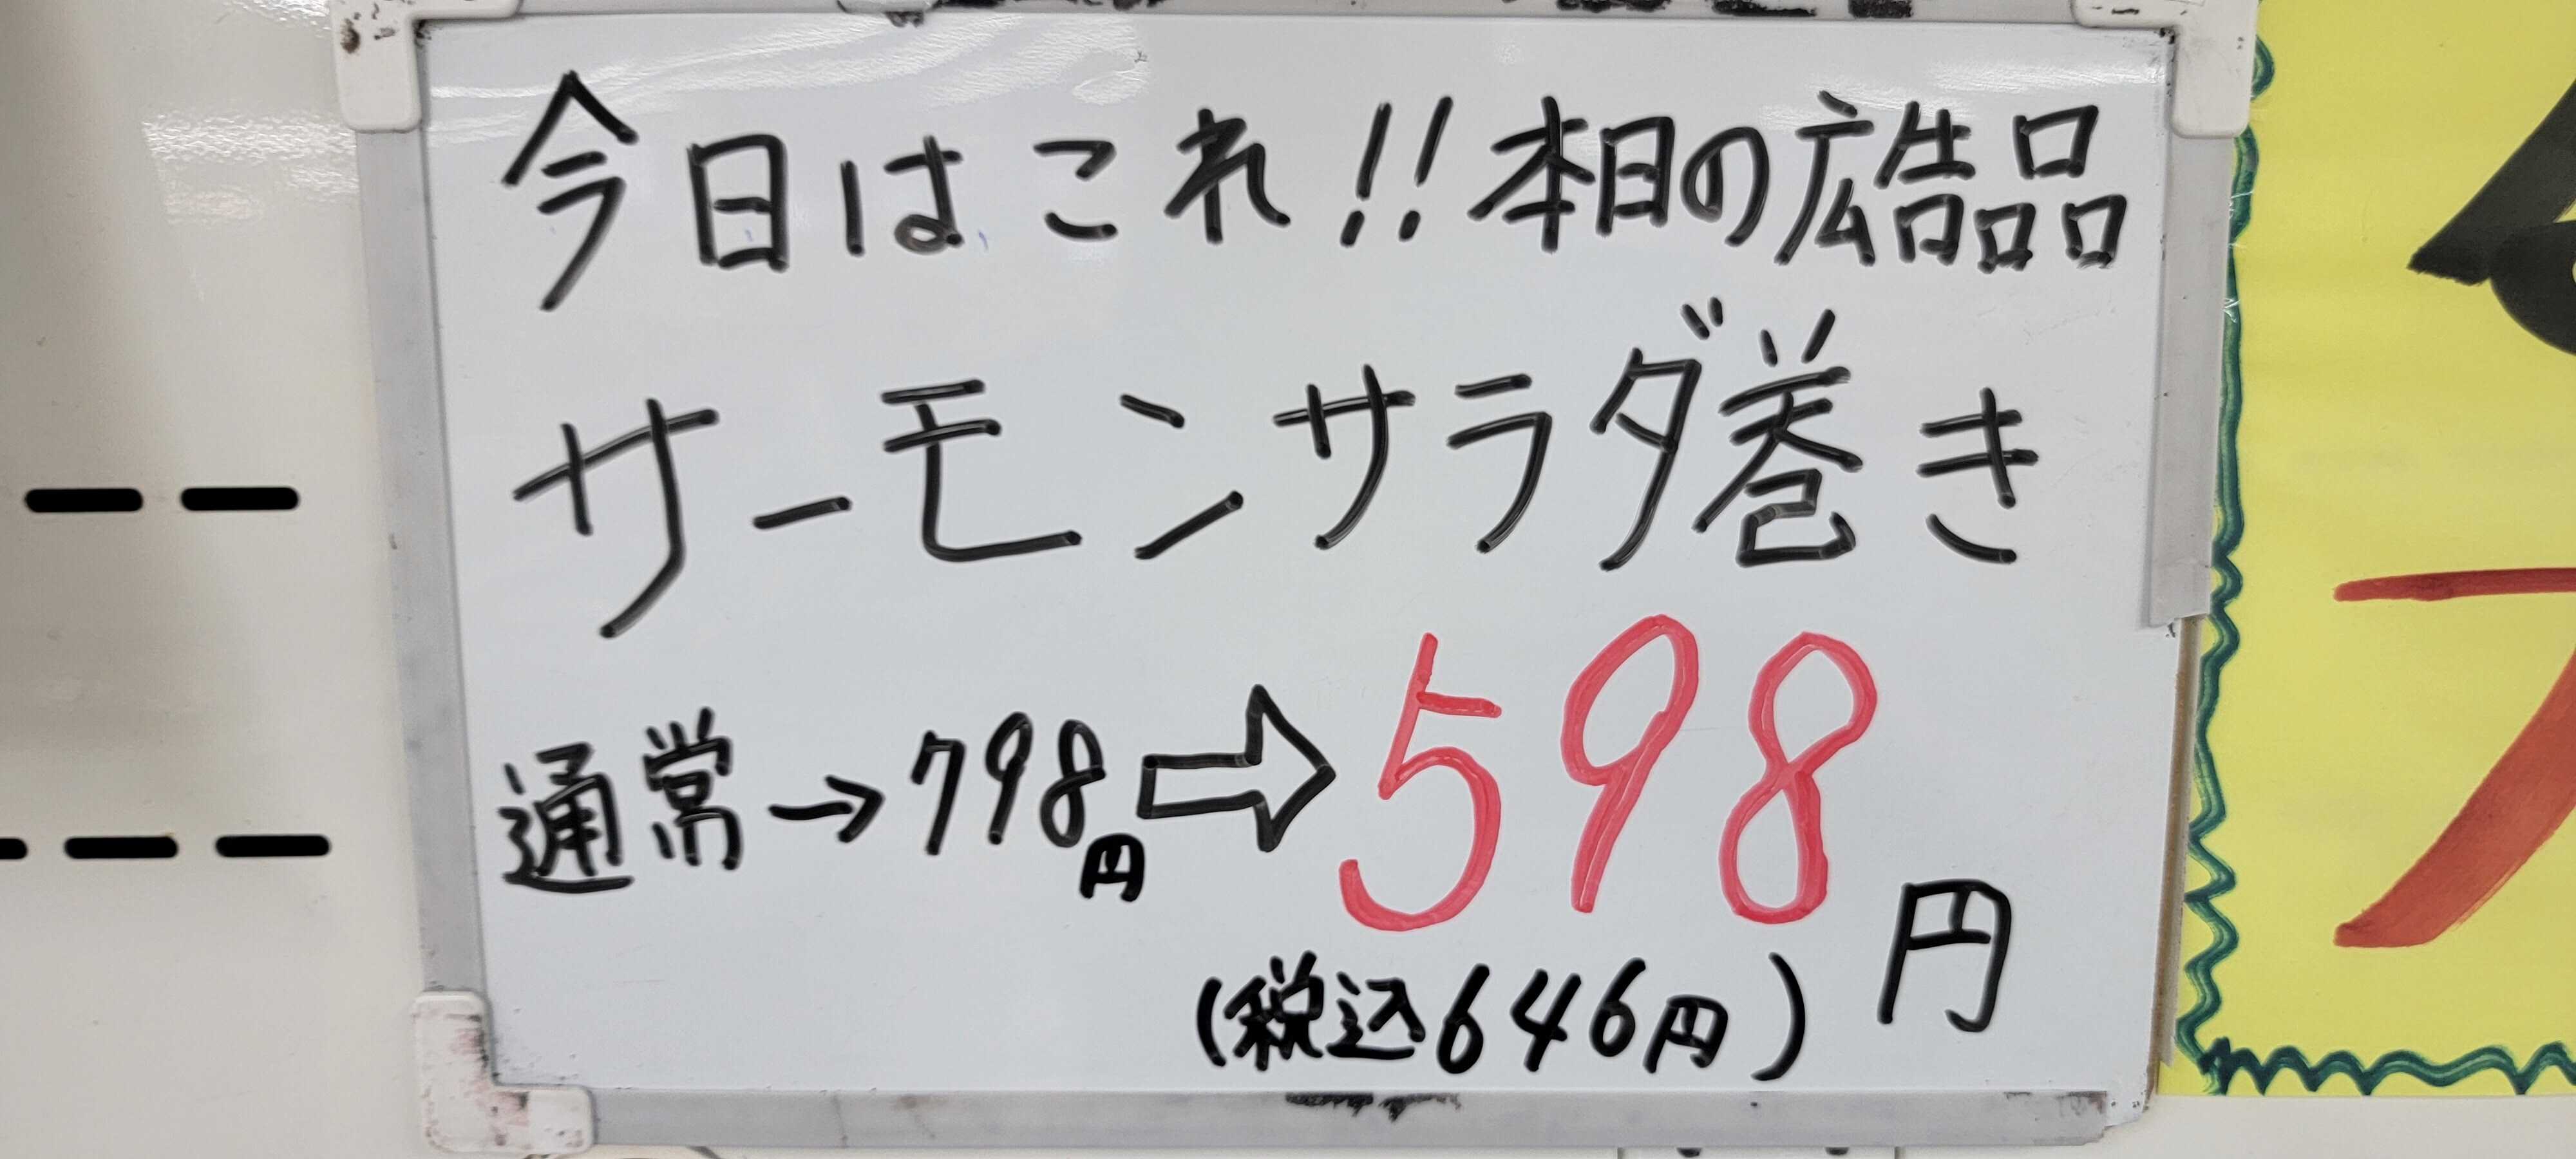 今日はこれ!!本日の広告品
サーモンサラダ巻き
通常→798円⇨598円
(税込646円)